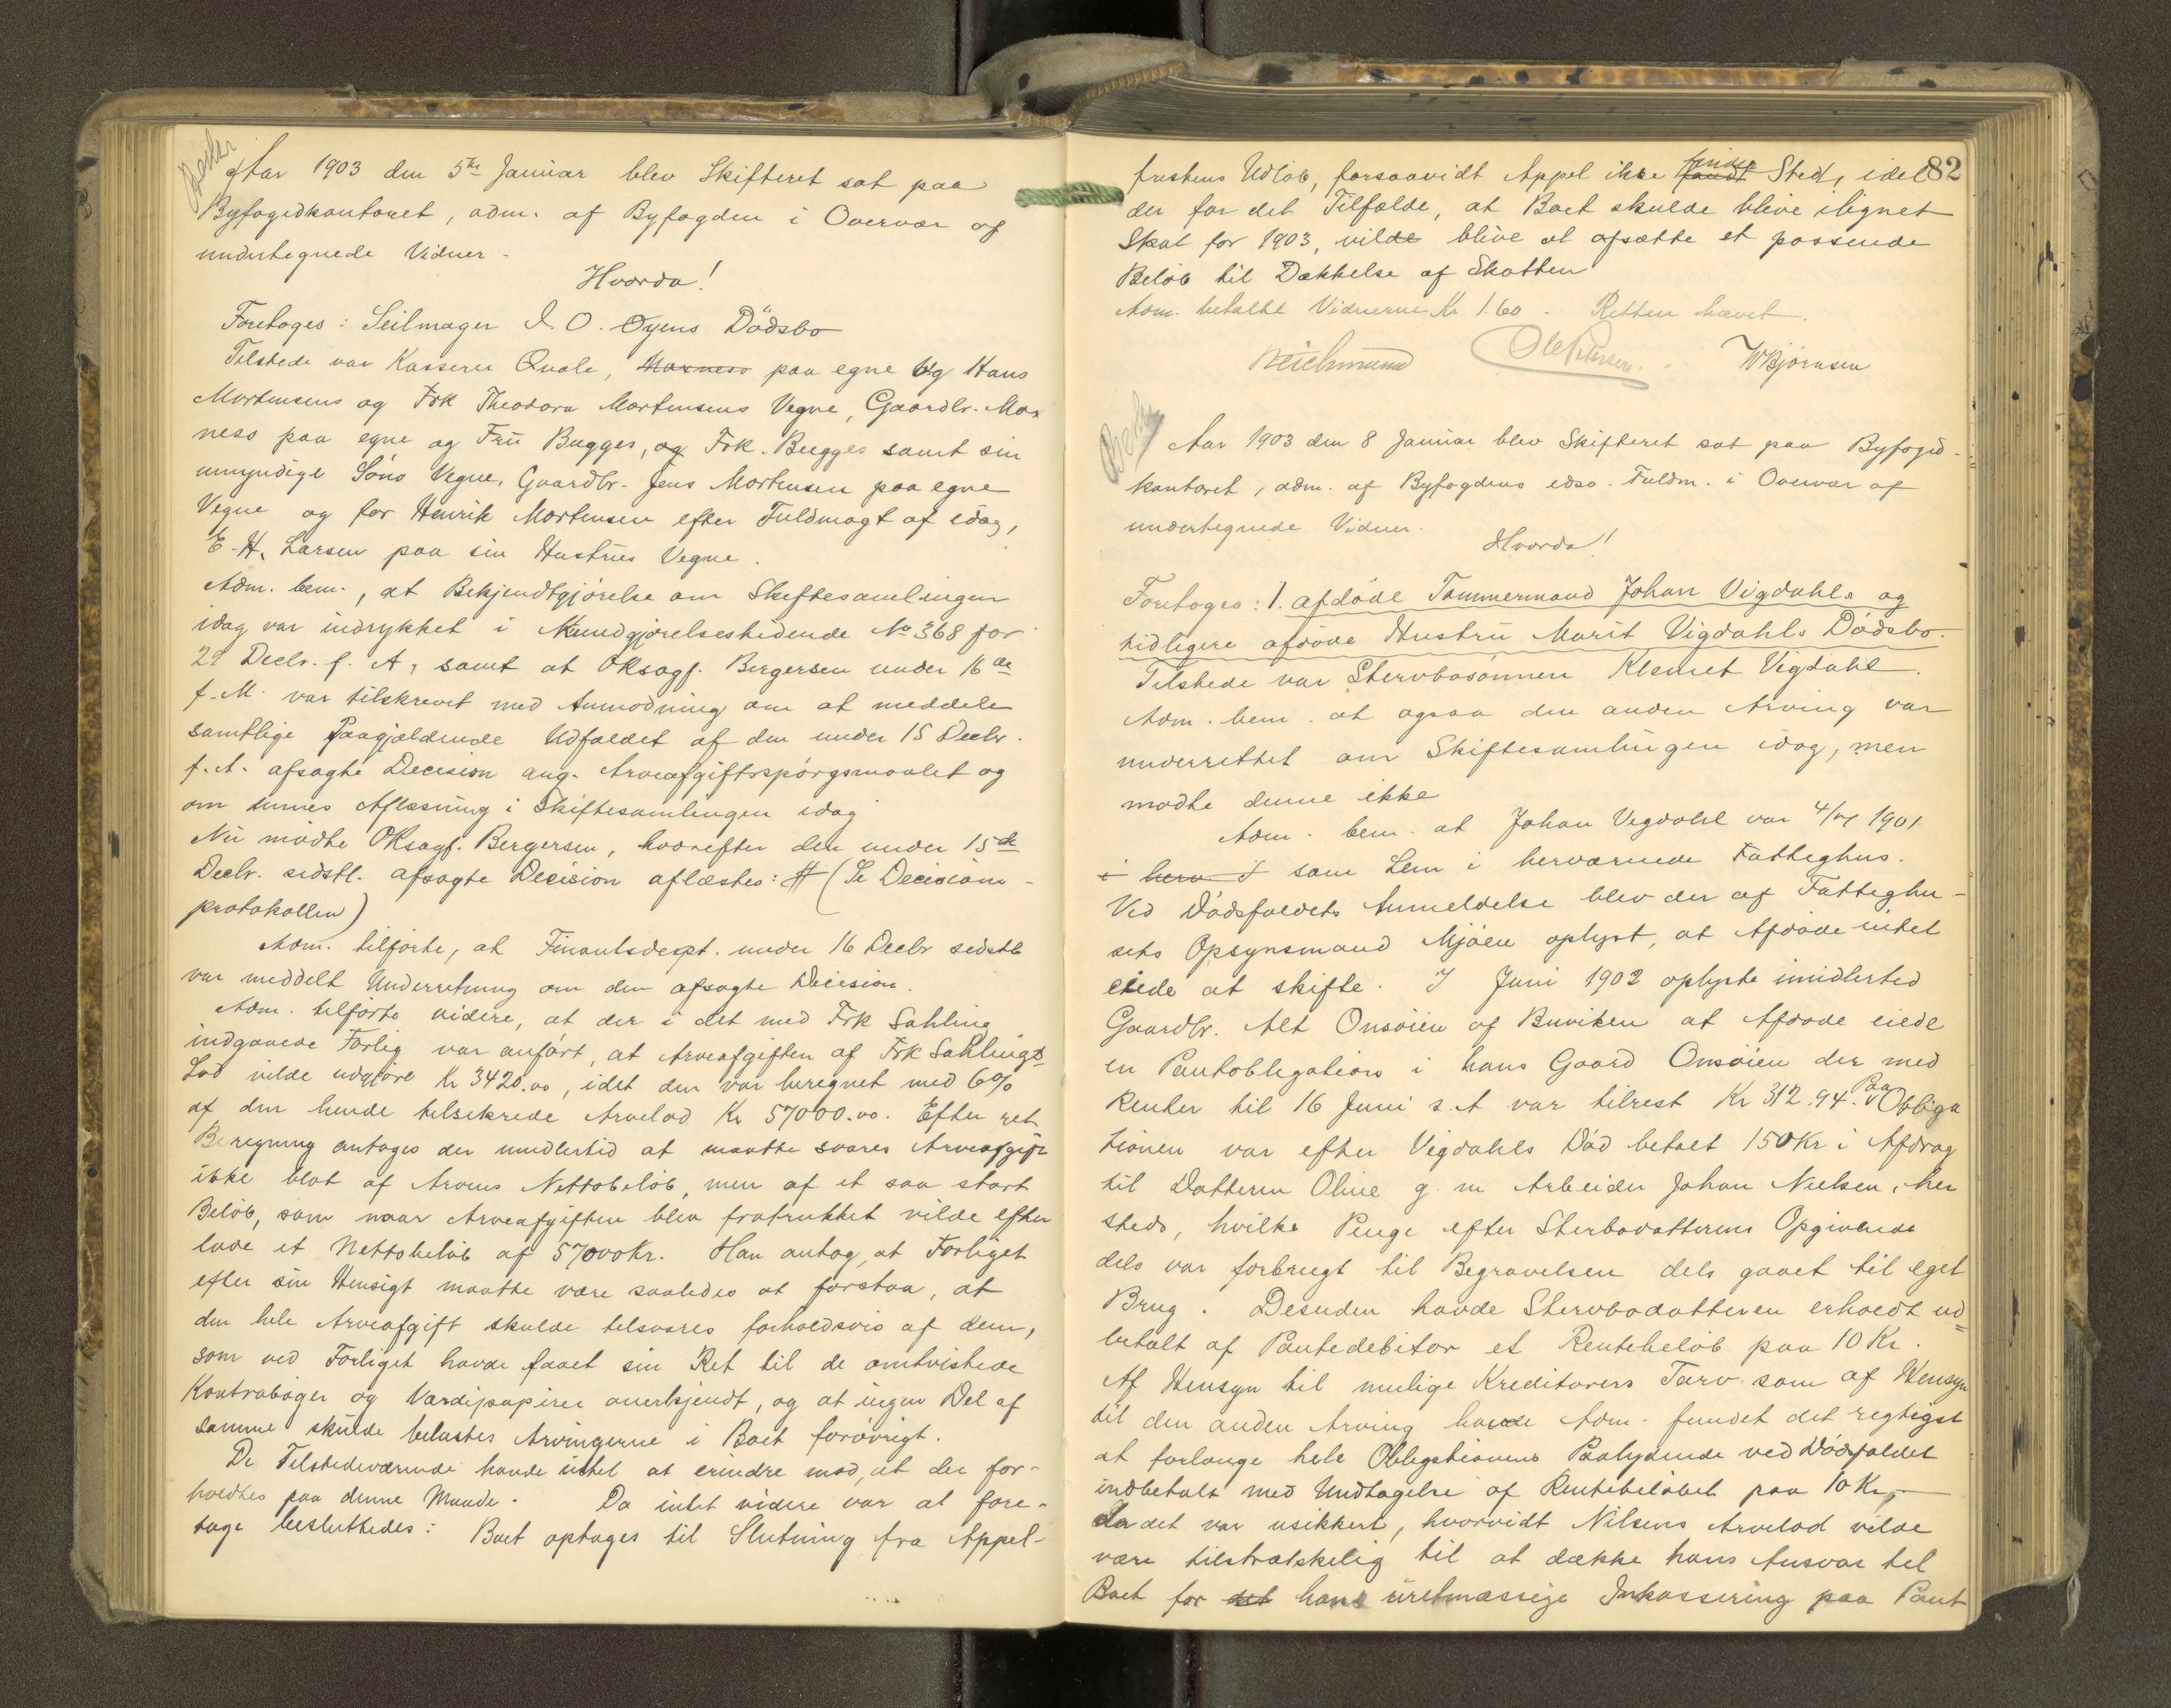 Aar 1903 den 5te Januar blev Skifteret sat paa
Byfogedkontoret, adm. af Byfogden i Overvær af
undertegnede Vidner -
Hvorda!
Foretoges: Seilmager I. O. Oyens Dödsbo
Tilstede var Kasserer Qvale, Moxness paa egne og Hans
Mortensens og Frk Theodora Mortensens Vegne, Gaardbr. Mox
ness paa egne og Fru Bugges, og Frk. Bugges samt sin
umyndige Söns Vegne, Gaardbr. Jens Mortensen paa egne
Vegne og for Henrik Mortensen efter Fuldmagt af idag,
E. H. Larsen paa sin Hustrus Vegne.
Adm. bem., at Bekjendtgjörelse om Skiftesamlingen
idag var indrykket i Kundgjörelsestidende No 368 for
29 Decbr. f. A, samt at ORsagf. Bergersen under 16de
f. M. var tilskrevet med Anmodning om at meddele
samtlige Paagjældende Udfaldet af den under 15 Decbr.
f. A. afsagte Decision ang. Arveafgiftsspörgsmaalet og
om dennes Aflæsning i Skiftesamlingen idag
Nu mödte ORsagf. Bergersen, hvorefter den under 15de
Decbr. sidstl. afsagte Decision aflæstes: # (Se Decisions-
protokollen)
Adm. tilförte, at Finantsdept. under 16 Decbr sidstl
var meddelt Underretning om den afsagte Decision.
Adm. tilförte videre, at der i det med Frk Sahling
indgaaede Forlig var anfört, at Arveafgiften af Frk Sahlings
Lod vilde udgjöre Kr 3420.00, idet den var beregnet med 6%
af den hende tilsikrede Arvelod Kr 57000.00. Efter ret
Beregning antages der imidlertid at maatte svares Arveafgift
ikke blot af Arvens Nettobelöb, men af et saa stort
Belöb, som naar Arveafgiften blev fratrukket vilde efter
lade et Nettobelöb af 57000 Kr. Han antog, at Forliget
efter sin Hensigt maatte være saaledes at forstaa, at
den hele Arveafgift skulde tilsvares forholdsvis af dem,
som ved Forliget havde faaet sin Ret til de omtvistede
Kontraböger og Værdipapirer anerkjendt, og at ingen Del af
samme skulde belastes Arvingerne i Boet forövrigt.
De Tilstedeværende havde intet at erindre mod, at der for-
holdtes paa denne Maade. Da intet videre var at fore-
tage besluttedes: Boet optages til Slutning fra Appel-
82
fristens Udlöb, forsaavidt Appel ikke fandt finder Sted, idet
der for det Tilfælde, at Boet skulde blive ilignet
Skat for 1903, vilde blive at afsætte et passende
Belöb til Dækkelse af Skatten
Adm. betalte Vidnerne Kr 1.60. Retten hævet.
Ole Petersen. W Bjørnsen
Aar 1903 den 8 Januar blev Skifteret sat paa Byfoged-
kontoret, adm. af Byfogdens edsv. Fuldm. i Overvær af
undertegnede Vidner.
Hvorda!
Foretoges: 1. afdöde Tömmermand Johan Vigdahls og
tidligere afdöde Hustru Marit Vigdahls Dödsbo.
Tilstede var Stervbosönnen Klemet Vigdahl.
Adm. bem. at ogsaa den anden Arving var
underrettet om Skiftesamlingen idag, men
mödte denne ikke
Adm. bem. at Johan Vigdahl var 4/11 1901
i herv † som Lem i herværende Fattighus.
Ved Dödsfaldets Anmeldelse blev der af Fattighu-
sets Opsynsmand Mjöen oplyst, at Afdöde intet
eiede at skifte. I Juni 1902 oplyste imidlertid
Gaardbr. Alt Onsöien af Buviken at Afdöde eiede
en Pantobligation i hans Gaard Onsöien der med
Renter til 16 Juni s. A var tilrest Kr 312.94. Paa Obliga
tionen var efter Vigdahls Död betalt 150 Kr i Afdrag
til Datteren Oline g. m Arbeider Johan Nielsen, her
steds, hvilke Penge efter Sterbodatterens Opgivende
dels var forbrugt til Begravelsen dels gaaet til eget
Brug. Desuden havde Stervbodatteren erholdt ud=
betalt af Pantedebitor et Rentebelöb paa 10 Kr.
Af Hensyn til mulige Kreditorers Tarv som af Hensyn
til den anden Arving havde Adm. fundet det rigtigst
at forlange hele Obligationens Paalydende ved Dödsfaldet
indbetalt med Undtagelse af Rentebelöbet paa 10 Kr,-
da det var usikkert, hvorvidt Nilsens Arvelod vilde
være tilstrækkelig til at dække hans Ansvar til
Boet for det hans uretmæssige Inkassering paa Pant